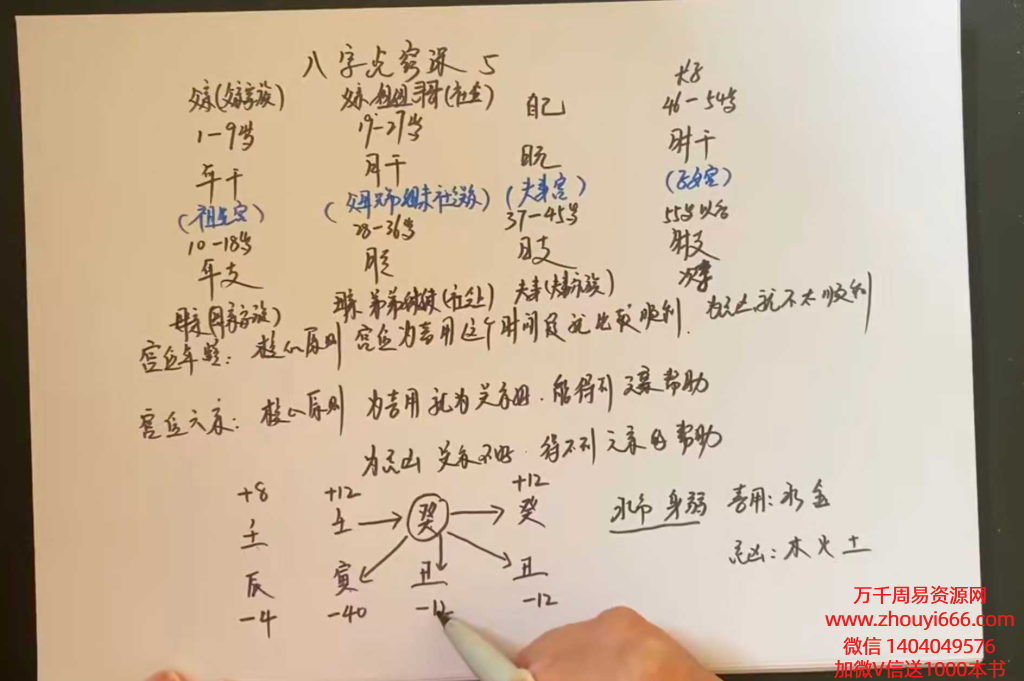 八字 5
父亲(父亲家族) 父亲 姐姐 哥哥(社会) 自己 长子
1-9岁 19-27岁 46-54岁
年干 月干 日元 时干
(祖上宫) (父母兄弟姐妹社会) (夫妻宫) (子女宫)
10-18岁 28-36岁 37-45岁 55岁以后
年支 月支 日支 时支
母亲(母亲家族) 母亲 弟弟妹妹(社会) 夫妻(夫妻家族) 次子
宫位年龄: 核心原则 宫位为喜用这个时间段就比较顺利. 为忌凶就不太顺利
宫位六亲: 核心原则 为喜用就为关系好. 能得到六亲帮助
为忌凶 关系不好. 得不到六亲的帮助
+8 +12 +12
壬 壬 癸 癸
辰 寅 丑 丑
-4 -40 -12 -12
水命 身弱 喜用: 水 金
忌凶: 木 火 土
万千周易资源网
www.zhouyi666.com
微信 1404049576
加微V信送1000本书